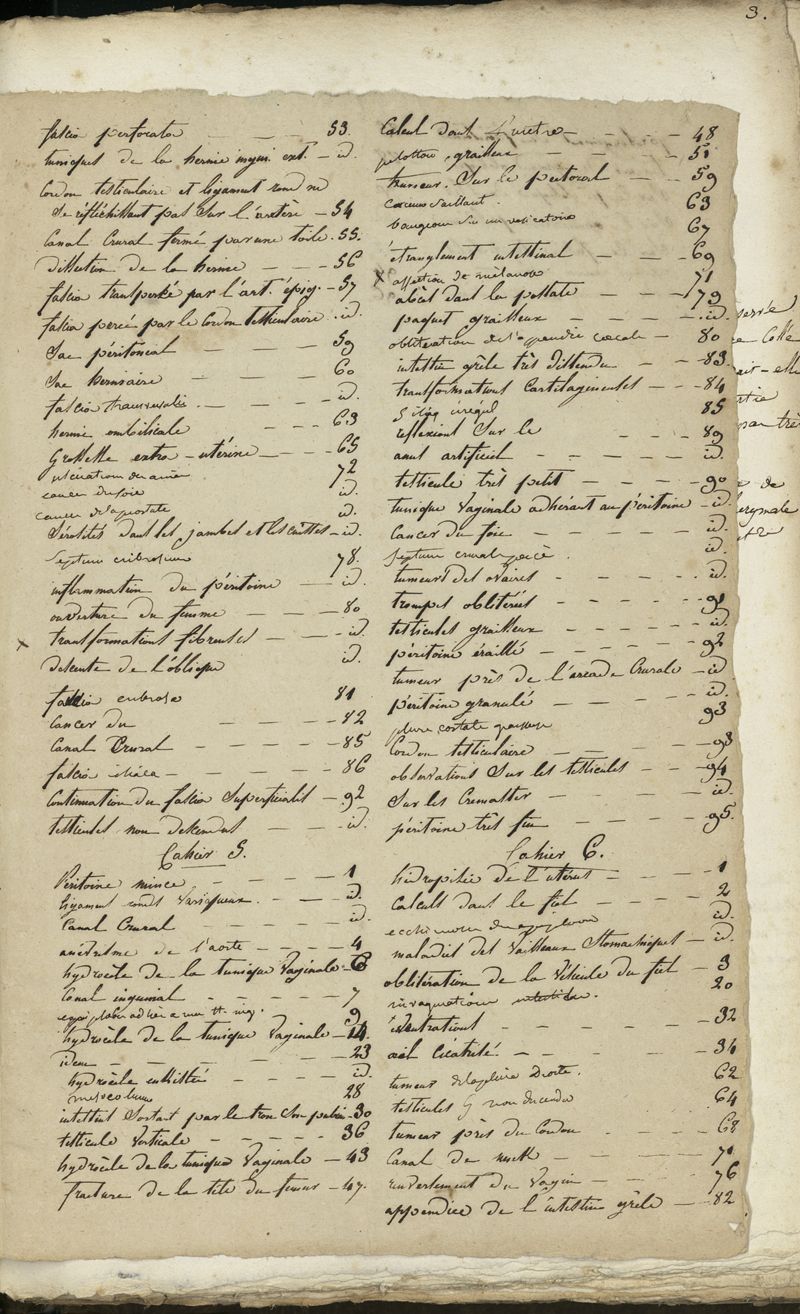 3.
fascia perforator — — — 53.
tuniques de la hernie inguin. ext. — id.
Cordon testiculaire et ligament rond ne
se réfléchissant pas sur l'artère — 54
Canal Crural fermé par une toile. 55.
dissection de la hernie — — — 56
fascia transpercé par l'art. épig. — 57
fascia percé par le Cordon testiculaire . id.
Sac péritonéal — — 59
Sac herniaire — — — 60
fascia transversalis . — — id.
hernie ombilicale — — — 63
Grossesse extra-utérine — — — 65
ulcération de 72
cancer du foie id.
cancer de la prostate id.
Sérosités dans les jambes et les cuisses — id.
Septum cribrosum 78.
inflammation du péritoine — — id.
ouverture du — — — 80
x transformations fibreuses — — — id.
descente de l'oblique id.
fascia cribrosa 81
Cancer du — — — — 82
Canal Crural — — — — — 85
fascia iliaca — — — — — 86
Continuation du fascia superficialis — 92
testicules non descendus — — — id.
Cahier 5.
Péritoine mince — — — — 1
ligament ronds variqueux . — — id.
Canal Crural — — — — id.
anévrisme de l'aorte — — — — 4
hydrocèle de la tunique vaginale — 6
Canal inguinal — — — — 7
9
hydrocèle de la tunique vaginale — 14.
idem — — — — — — 23
hydrocèle enkistée — — — — id.
mesocolum 28
intestins sortant par le pubien — 30
testicule verticale — — — — — 36
hydrocèle de la tunique vaginale — 43
fracture de la tête du fémur — 47.
Calcul dans l'urètre — — — — 48
pelottons graisseux — — — — 51
tumeur sur le pectoral — — — 59
63
67
étranglement intestinal — — — 69
x 71
abcès dans la — — — 79
paquet graisseux — — — — — id.
oblitération de l'appendice cœcale — 80
intestin grêle très distendu — — — 83.
transformations Cartilagineuses — — — 84
85
réflexions sur le — — 89
anus artificiel — — — — id.
testicule très petit — — — — 90
tunique vaginale adhérant au péritoine — id.
Cancer du foie — — — — — id.
septum crurale percé . id.
tumeurs des ovaires — — — — . id.
trompes oblitérées — — — — — 91
testicules graisseux — — — — — id.
péritoine éraillé — — — — — 92
tumeur près de l'arcade Crurale — id
péritoine granulé — — — — id.
plèvre costale graisseuse 93
Cordon testiculaire — — — — — 93
observations sur les testicules — — — 94
Sur les Cremaster — — — — id.
péritoine très fin — — — — — 95.
Cahier 6.
hidropisie de l'utérus — — — — 1
Calculs dans le fiel — — — — 2
id.
maladies des vaisseaux Stomachiques — id.
oblitération de la vésicule du fiel — 3
invagination intestin. 20
éventrations — — — — — — 32
œil cicatrisé — — — — — 34
tumeur de la plèvre droite. 62
testicules non descendus 64
tumeur près du Cordon — — — — 68
Canal de nuck — — — — — 71
renversement du vagin — — — — 76
appendice de l'intestin grêle — — 82